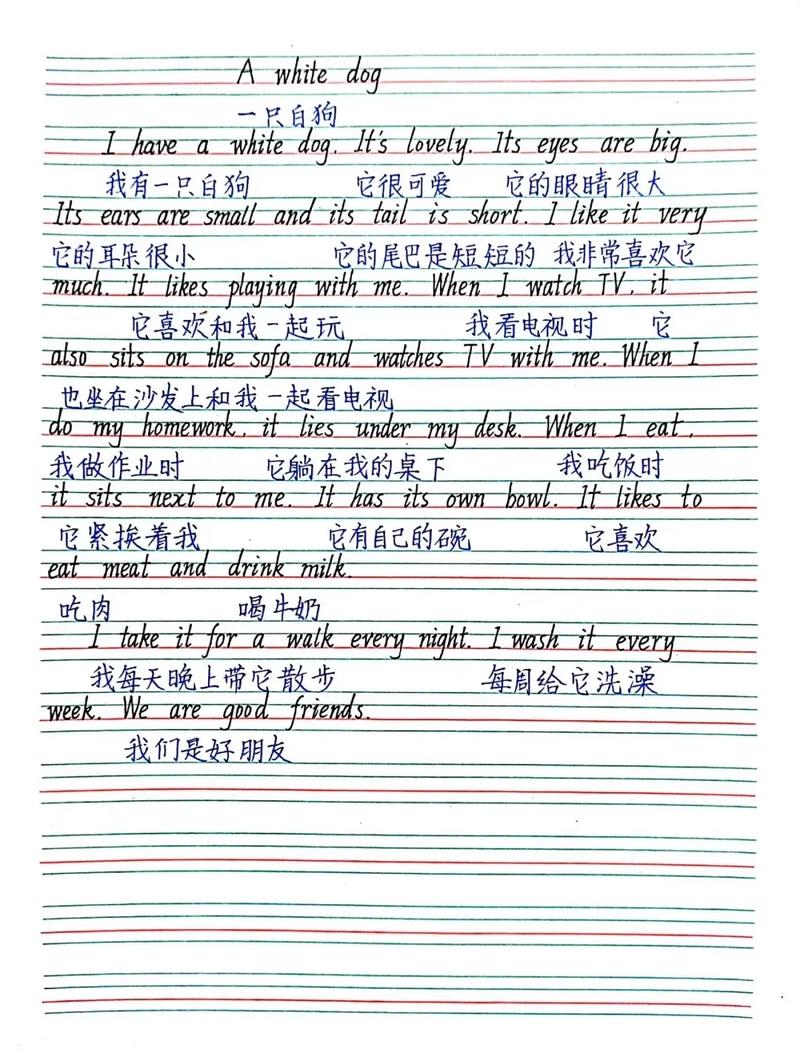 A white dog
一只白狗
I have a white dog. It's lovely. Its eyes are big.
我有一只白狗 它很可爱 它的眼睛很大
Its ears are small and its tail is short. I like it very
它的耳朵很小 它的尾巴是短短的 我非常喜欢它
much. It likes playing with me. When I watch TV, it
它喜欢和我一起玩 我看电视时 它
also sits on the sofa and watches TV with me. When I
也坐在沙发上和我一起看电视
do my homework, it lies under my desk. When I eat,
我做作业时 它躺在我的桌下 我吃饭时
it sits next to me. It has its own bowl. It likes to
它紧挨着我 它有自己的碗 它喜欢
eat meat and drink milk.
吃肉 喝牛奶
I take it for a walk every night. I wash it every
我每天晚上带它散步 每周给它洗澡
week. We are good friends.
我们是好朋友